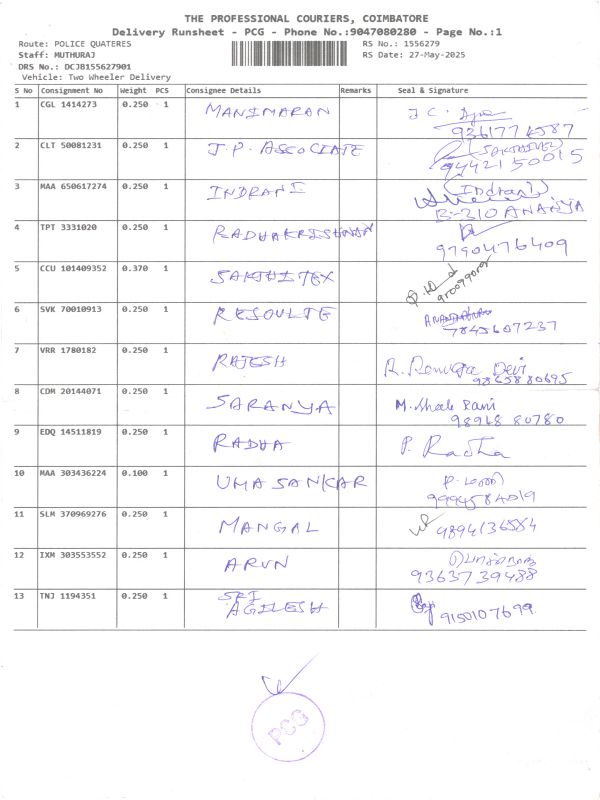 THE PROFESSIONAL COURIERS, COIMBATORE
Delivery Runsheet - PCG - Phone No.:9047080280 - Page No.:1
Route: POLICE QUATERES
RS No.: 1556279
Staff: MUTHURAJ
RS Date: 27-May-2025
DRS No.: DCJB155627901
Vehicle: Two Wheeler Delivery
S No Consignment No Weight PCS Consignee Details Remarks Seal & Signature
1 CGL 1414273 0.250 1 MANIMARAN
2 CLT 50081231 0.250 1 J.P. ASSOCIATE
9442150015
3 MAA 650617274 0.250 1 INDRANI (Indrani)
B-310 ANANYA
4 TPT 3331020 0.250 1 RADHAKRISHNAN
9790476409
5 CCU 101409352 0.370 1 SAKTHITEX
6 SVK 70010913 0.250 1 RESOULTE
7845607237
7 VRR 1780182 0.250 1 RAJESH R. Renuga Devi
9865880695
8 CDM 20144071 0.250 1 SARANYA M. Sheela Rani
98948 80780
9 EDQ 14511819 0.250 1 RADHA P. Radha
10 MAA 303436224 0.100 1 UMA SANKAR
9994584019
11 SLM 370969276 0.250 1 MANGAL 9894136584
12 IXM 303553552 0.250 1 ARUN
9363739488
13 TNJ 1194351 0.250 1 SRI
AGILESH 9150107699
PCG